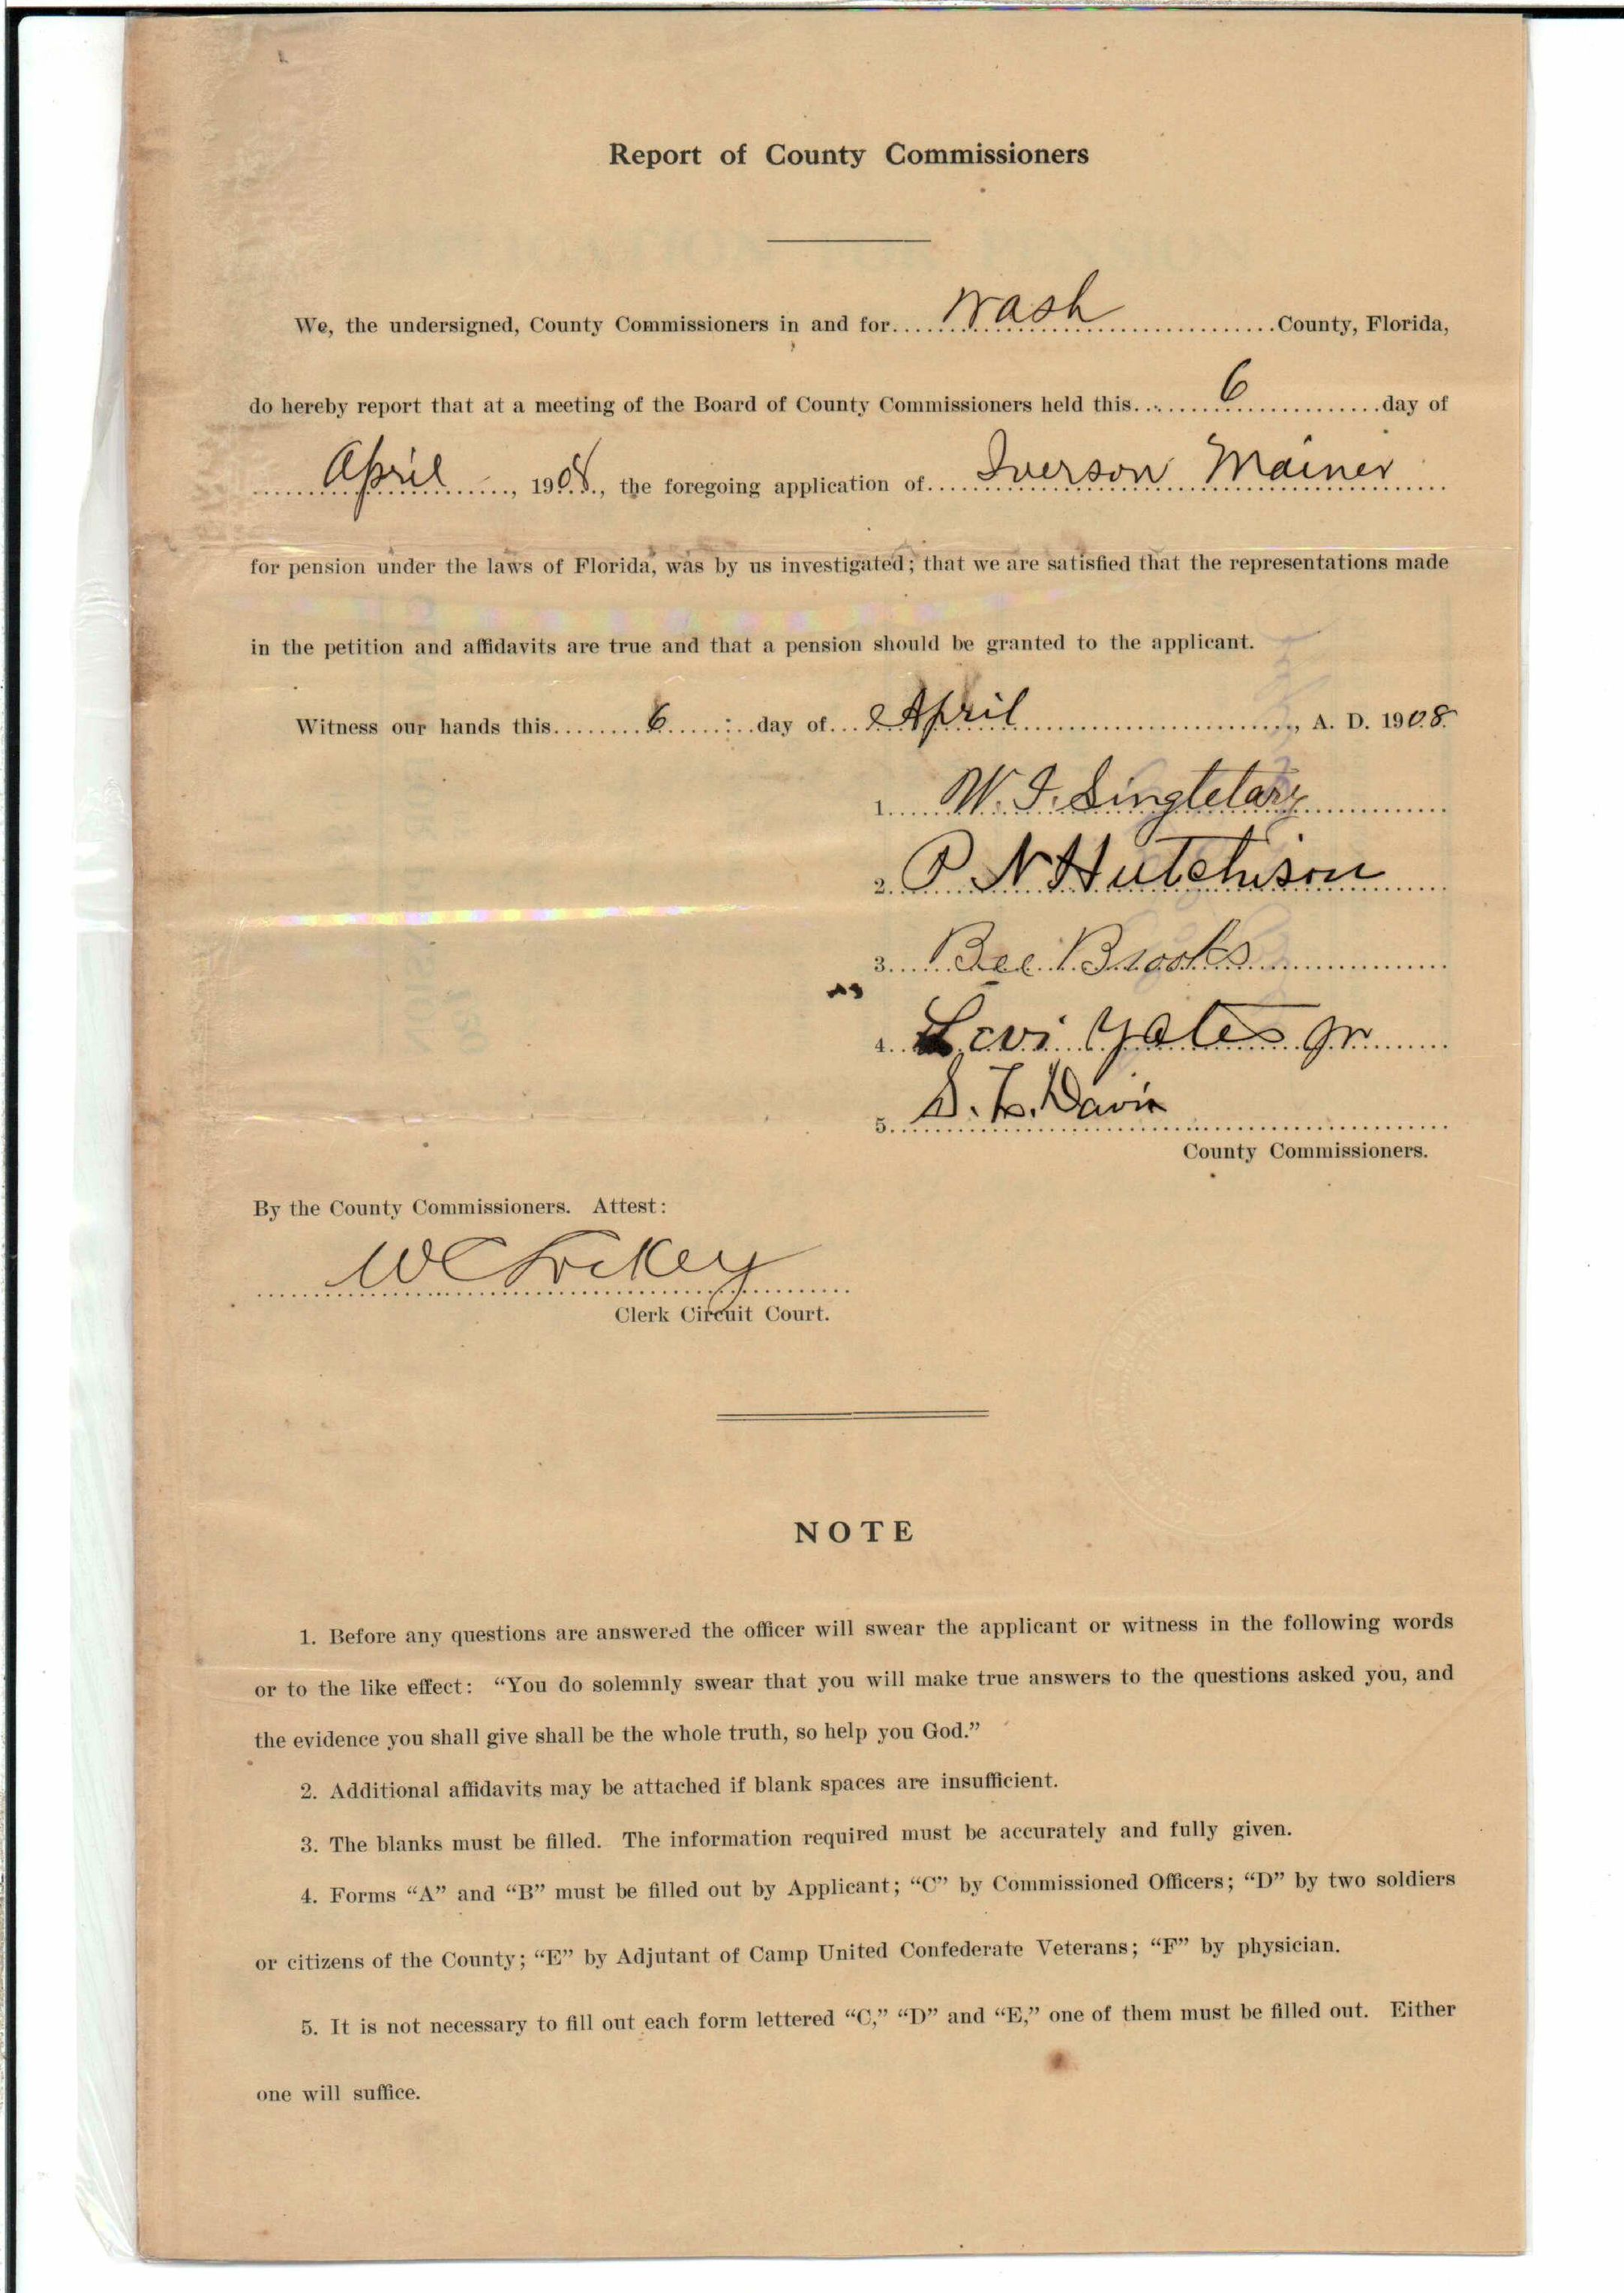 Report of County Commissioners
We, the undersigned, County Commissioners in and for Wash County, Florida,
do hereby report that at a meeting of the Board of County Commissioners held this 6 day of
April, 1908, the foregoing application of Iverson Mainer
for pension under the laws of Florida, was by us investigated; that we are satisfied that the representations made
in the petition and affidavits are true and that a pension should be granted to the applicant.
Witness our hands this 6 day of April, A. D. 1908
1. W. I. Singletary
2. P N Hutchison
3. Bee Brooks
4. Levi Yates Jr
5. S. L. Davis
County Commissioners.
By the County Commissioners. Attest:
W C Lockey
Clerk Circuit Court.
NOTE
1. Before any questions are answered the officer will swear the applicant or witness in the following words
or to the like effect: “You do solemnly swear that you will make true answers to the questions asked you, and
the evidence you shall give shall be the whole truth, so help you God.”
2. Additional affidavits may be attached if blank spaces are insufficient.
3. The blanks must be filled. The information required must be accurately and fully given.
4. Forms “A” and “B” must be filled out by Applicant; “C” by Commissioned Officers; “D” by two soldiers
or citizens of the County; “E” by Adjutant of Camp United Confederate Veterans; “F” by physician.
5. It is not necessary to fill out each form lettered “C,” “D” and “E,” one of them must be filled out. Either
one will suffice.